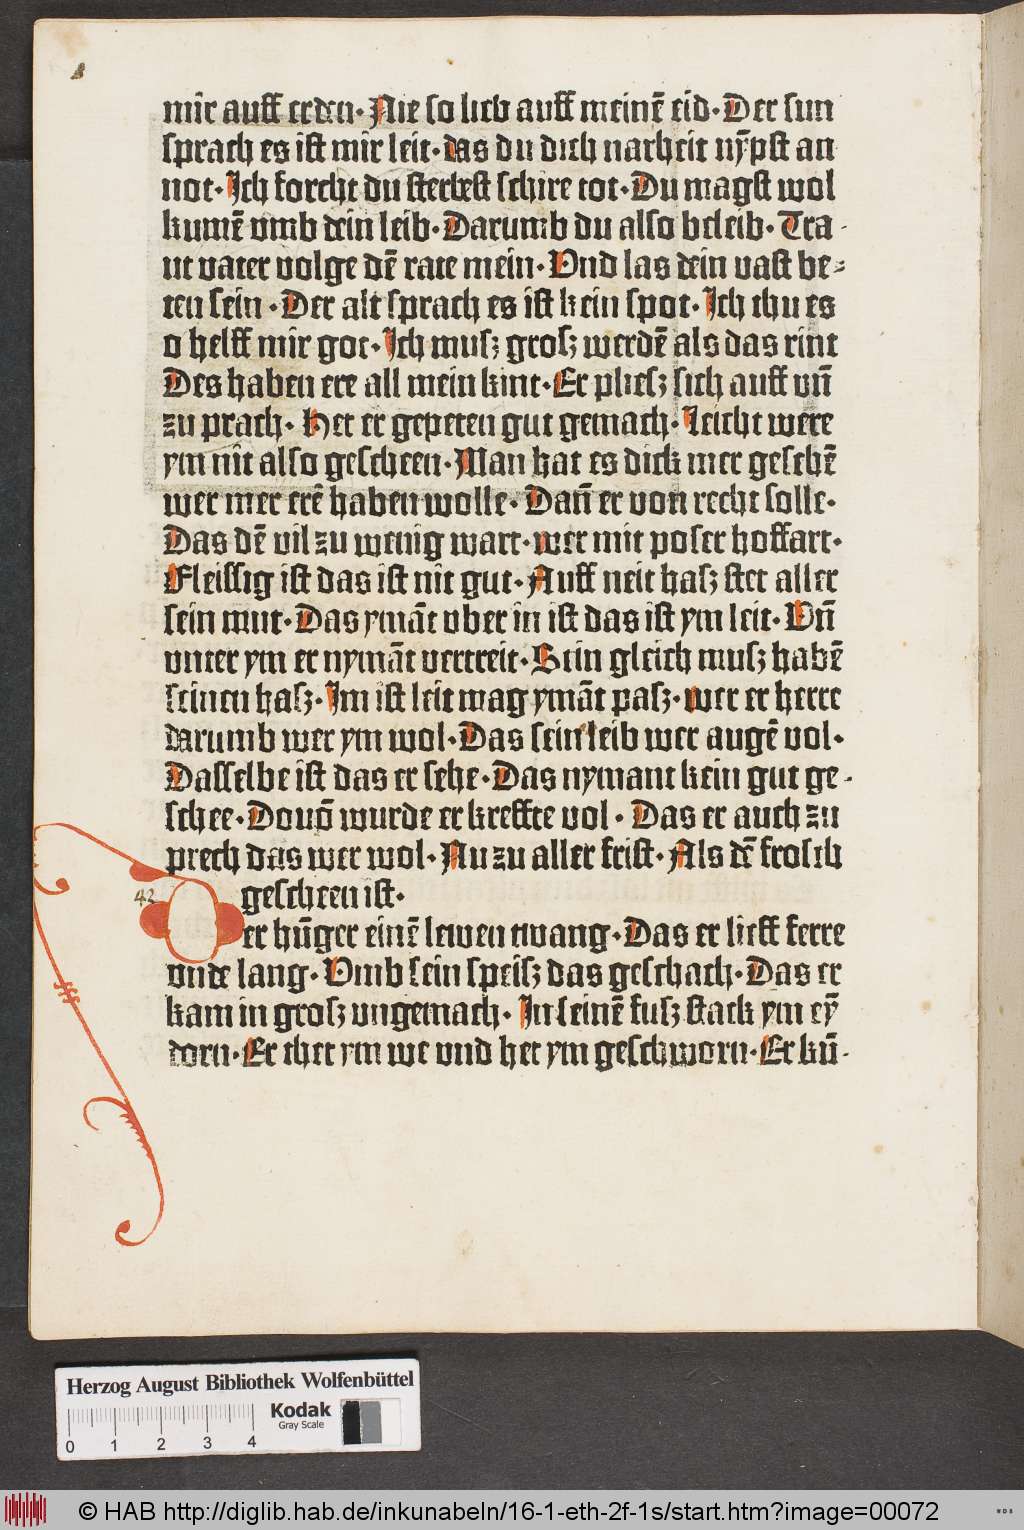 mir auff erden· Nie so lieb auff meinē eid· Der sun
sprach es ist mir leit· das du dich narheit nȳpst an
not· Ich forcht du sterbest schire tot· Du magst wol
kumē vmb dein leib· Darumb du also beleib· Tra·
ut vater volge dē rate mein· Vnd las dein vast be-
ten sein · Der alt sprach es ist kein spot· Ich thu es
o helff mir got· Ich musz grosz werdē als das rint
Des haben ere all mein kint· Er pliesz sich auff vn̄
zu prach· Het er gepeten gut gemach· Leicht were
ym nit also gescheen· Man hat es dick mer gesehē
wer mer erē haben wolle· Dan̄ er von recht solle·
Das dē vil zu wenig wart· wer mit poser hoffart·
Fleissig ist das ist nit gut· Auff neit hasz stet aller
sein mut· Das ymāt vber in ist das ist ym leit· Vn̄
vnter ym er nymāt vertreit· Sein gleich musz habē
seinen hasz· Im ist leit mag ymāt pasz· wer er herre
darumb wer ym wol· Das sein leib wer augē vol·
Dasselbe ist das er sehe· Das nymant kein gut ge·
schee· Douō wurde er kreffte vol· Das er auch zu
prech das wer wol· Nu zu aller frist· Als dē frosch
gescheen ist·
42
Der hūger einē lewen twang· Das er lieff ferre
vnde lang· Vmb sein speisz das geschach· Das er
kam in grosz vngemach· In seinē fusz stack ym eȳ
dorn· Er thet ym we vnd het ym geschworn· Er kū·
Herzog August Bibliothek Wolfenbüttel
Kodak
Gray Scale
0 1 2 3 4
© HAB http://diglib.hab.de/inkunabeln/16-1-eth-2f-1s/start.htm?image=00072